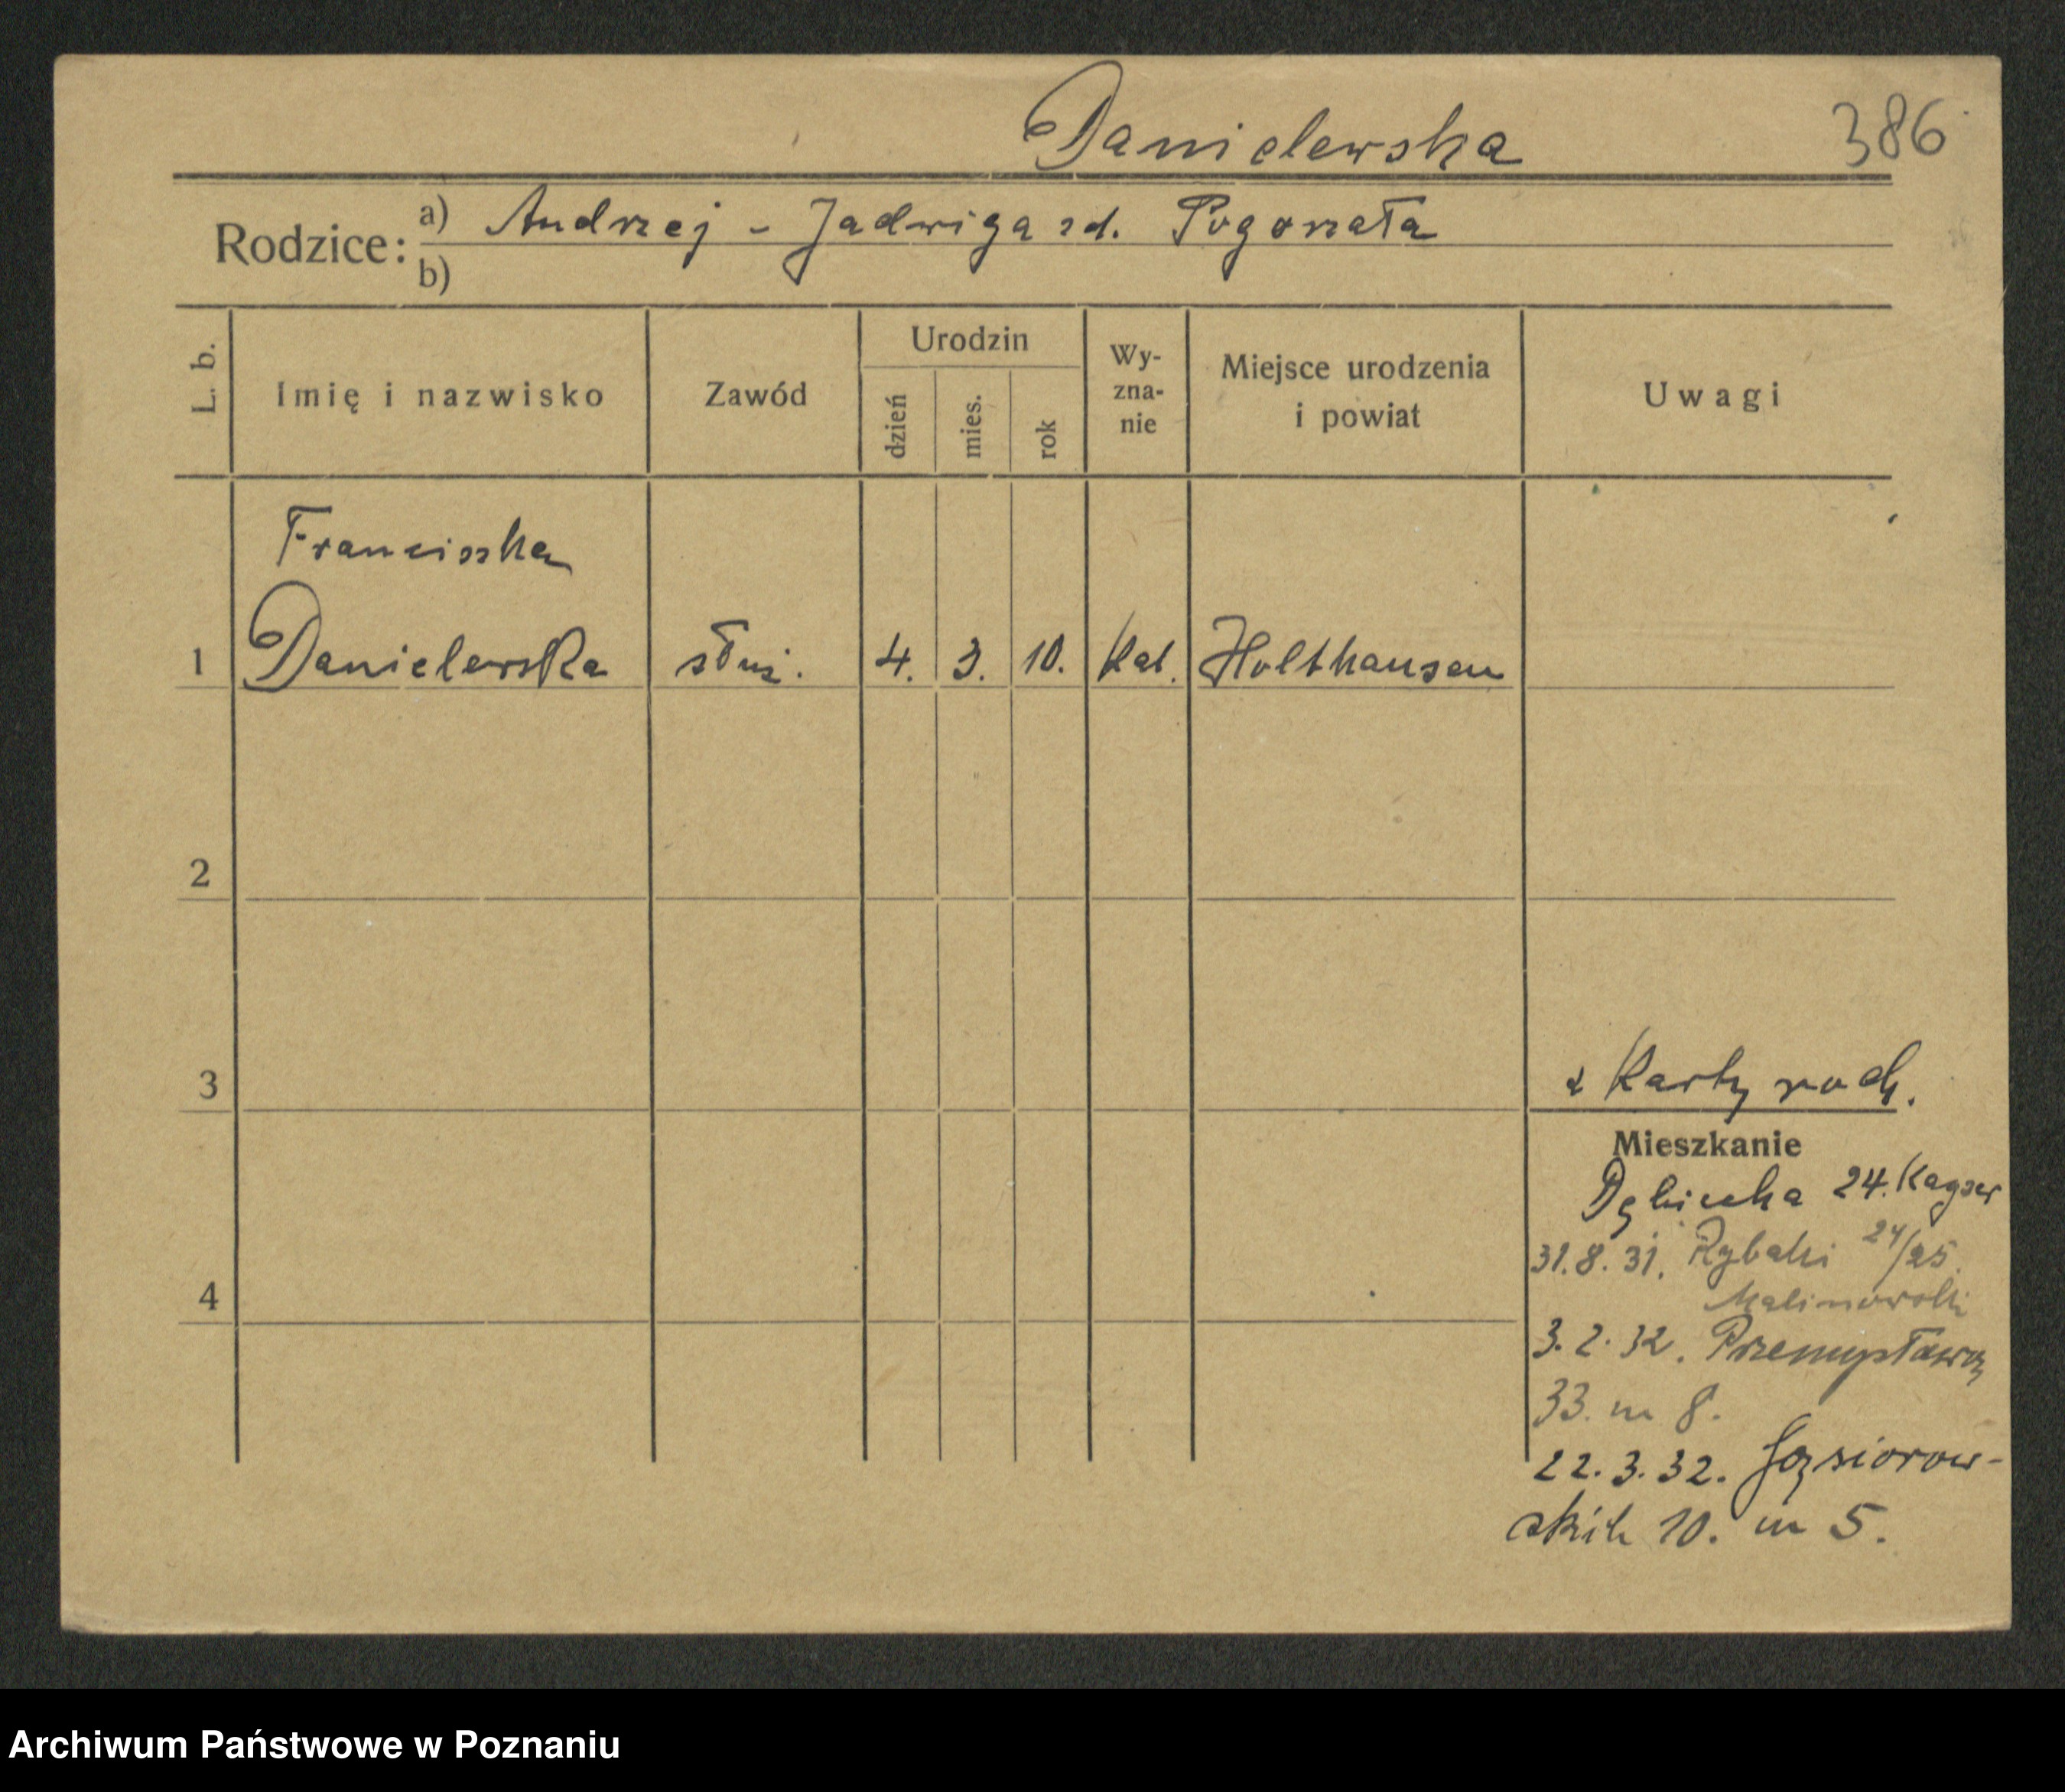 Danielewska
386
Rodzice: a) Andrzej - Jadwiga zd.
b)
L. b.
Imię i nazwisko
Zawód
Urodzin
dzień
mies.
rok
Wy-
zna-
nie
Miejsce urodzenia
i powiat
Uwagi
Franciszka
1 Danielewska służ. 4. 3. 10. Kat. Holthausen
2
3
z Karty roch.
Mieszkanie
24. Kayser
4
31.8.31. Rybaki 24/25.
Malinowski
3.2.32. Przemysławą
33. m 8.
22.3.32. Gąsiorow-
skich 10. m 5.
Archiwum Państwowe w Poznaniu